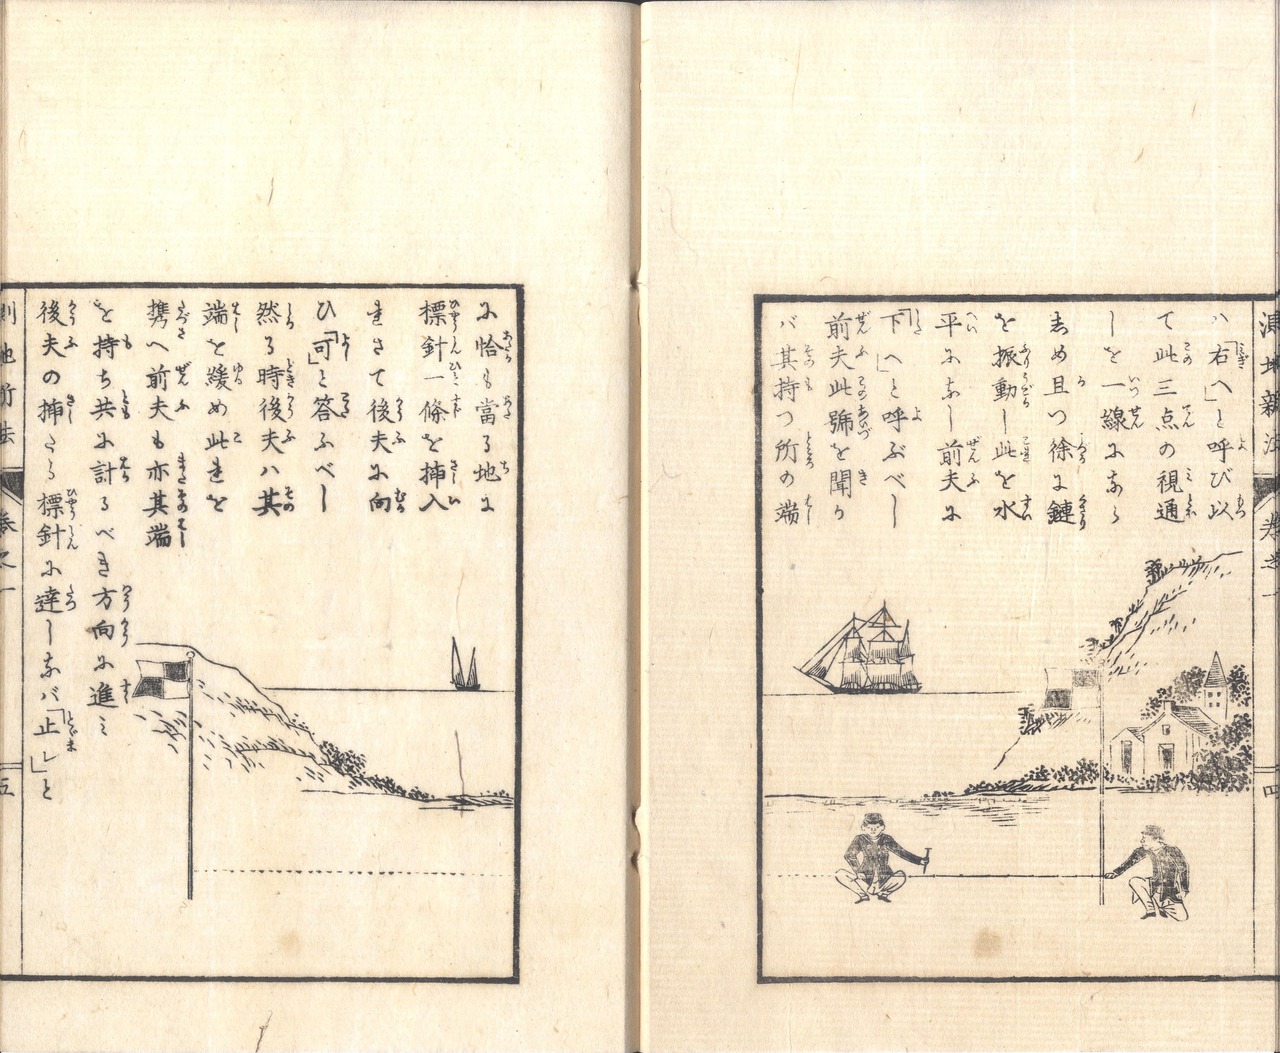 ハ「右へ」と呼び以
て此三点の視通
しを一線になら
しめ且つ徐に鏈
を振動し此を水
平になし前夫に
「下へ」と呼ぶべし
前夫此號を聞か
バ其持つ所の端
に恰も當る地に
標針一條を挿入
れさて後夫に向
ひ「可」と答ふべし
然る時後夫ハ其
端を緩め此れを
携へ前夫も亦其端
を持ち共に計るべき方向に進ミ
後夫の挿たる標針に達しなバ「止レ」と
卷之一
四
卷之一
五